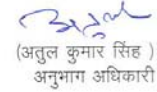 (अतुल कुमार सिंह )
अनुभाग अधिकारी